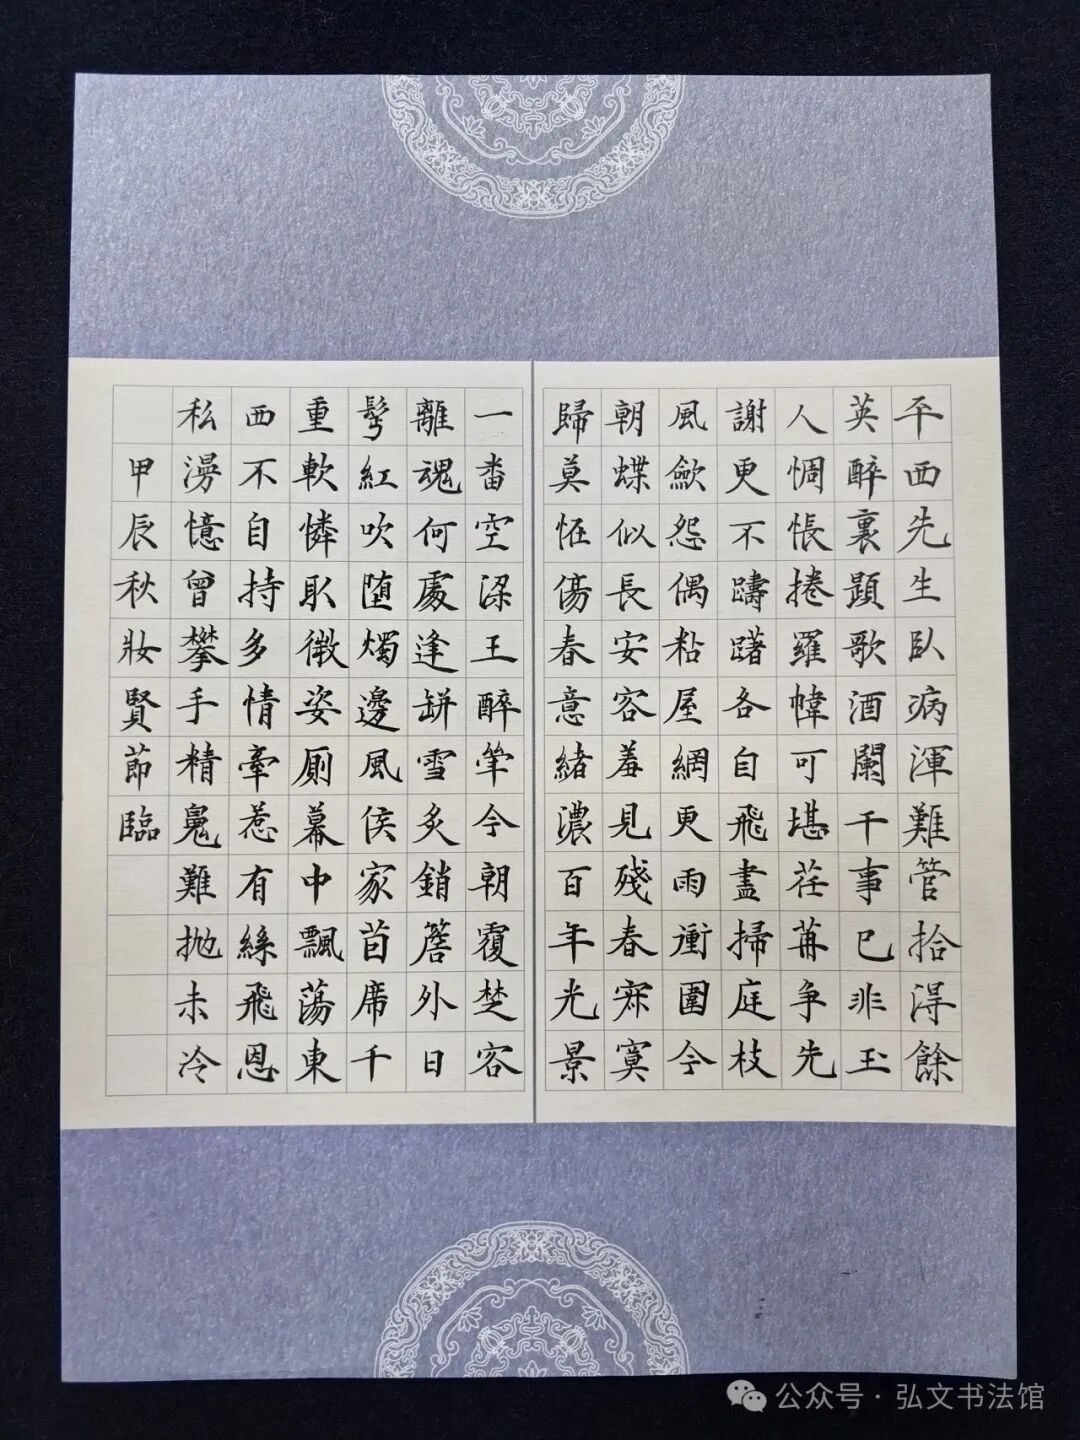 平西先生臥病渾難管拾得餘
英醉裏題歌酒闌千事已非玉
人惆悵捲羅幃可堪荏苒爭先
謝更不躊躇各自飛盡掃庭枝
風歛怨偶粘屋網更雨衝圍今
朝蝶似長安客羞見殘春寂寞
歸莫恠傷春意緒濃百年光景
一番空梁王醉筆今朝覆楚客
離魂何處逢缾雪炙銷簷外日
髩紅吹墮燭邊風侯家茵席千
重軟憐取微姿厠幕中飄蕩東
西不自持多情牽惹有絲飛恩
私漫憶曾攀手精鬼難拋未冷
甲辰秋妝賢節臨
公众号·弘文书法馆